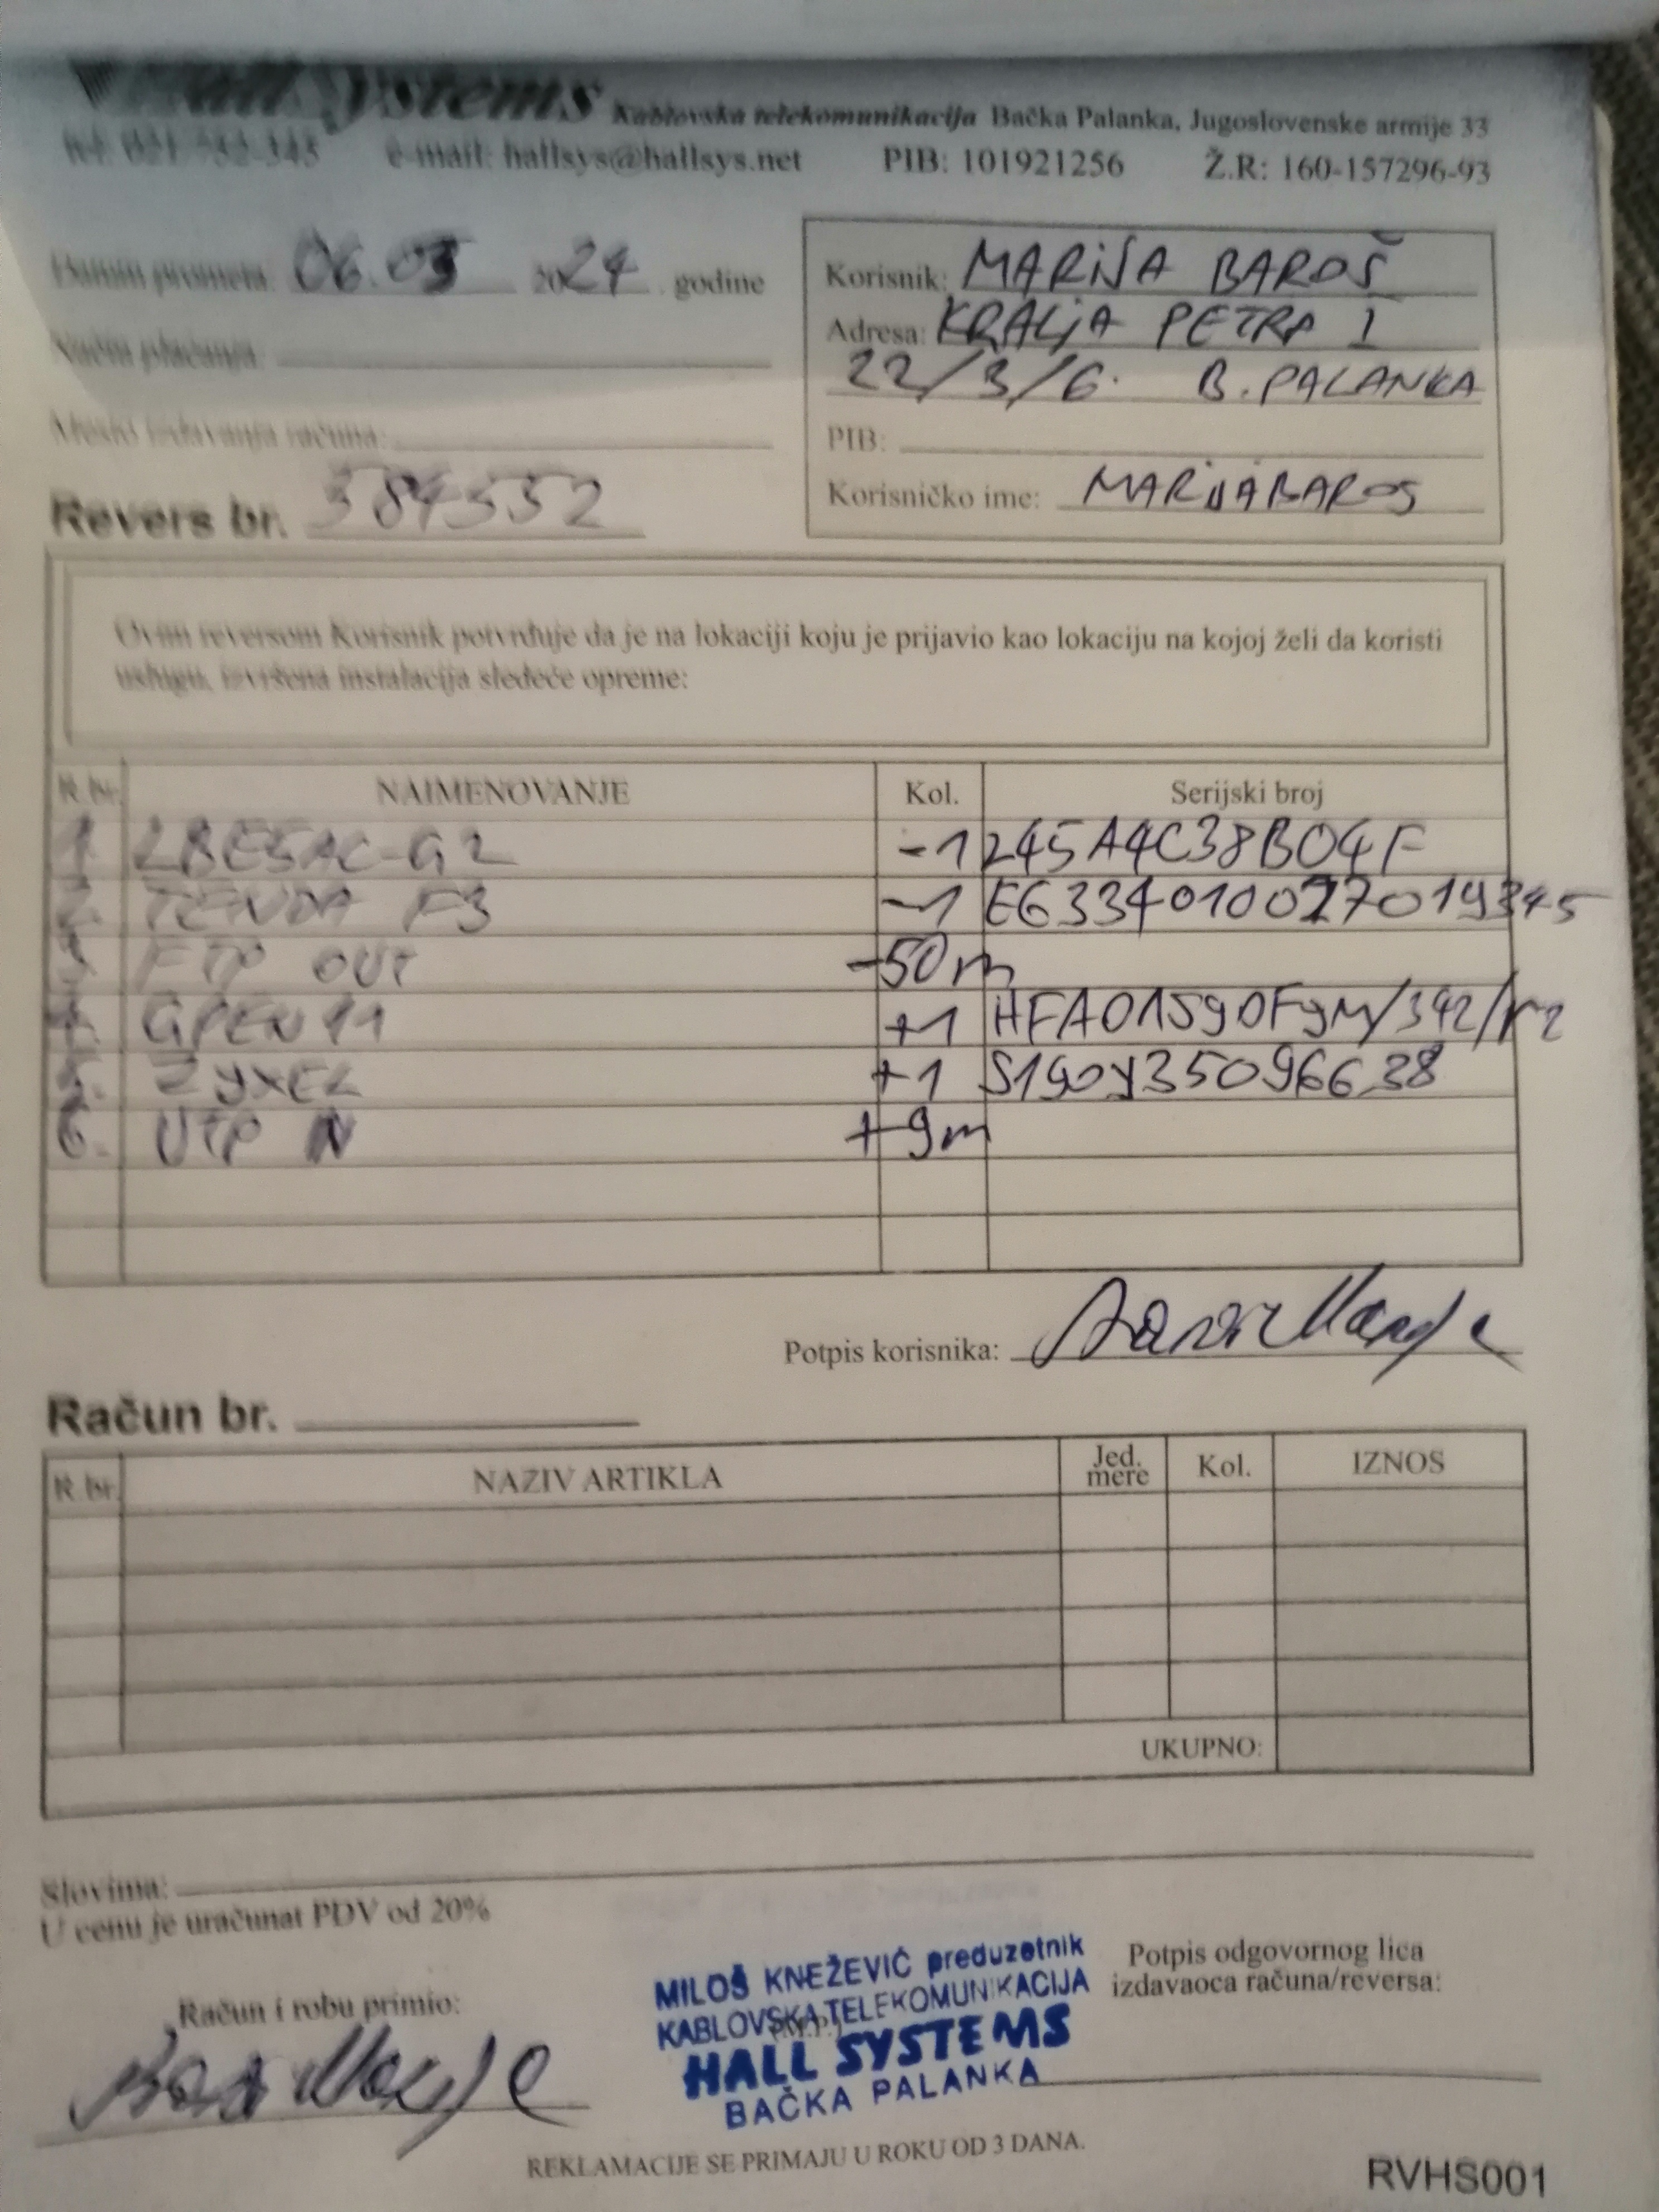 Hall Systems Kablovska telekomunikacija Bačka Palanka, Jugoslovenske armije 33
tel: 021/752-345 e-mail: hallsys@hallsys.net PIB: 101921256 Ž.R: 160-157296-93
Datum prometa: 06.03 2024 godine
Korisnik: MARIJA BAROŠ
Adresa: KRALJA PETRA I
22/3/6. B. PALANKA
Način plaćanja:
Mesto izdavanja računa:
PIB:
Korisničko ime: MARIJABAROS
Revers br. 384552
Ovim reversom Korisnik potvrđuje da je na lokaciji koju je prijavio kao lokaciju na kojoj želi da koristi
uslugu, izvršena instalacija sledeće opreme:
R. br. NAIMENOVANJE Kol. Serijski broj
1. LBE5AC-G2 -1 245A4C38B04F
2. TENDA F3 -1 E6334010027019345
3. FTP OUT -50m
4. GPEN11 +1
5. ZYXEL +1 S190Y35096638
6. UTP IN +9m
Potpis korisnika:
Račun br.
R. br. NAZIV ARTIKLA Jed. mere Kol. IZNOS
UKUPNO:
Slovima:
U cenu je uračunat PDV od 20%
Račun i robu primio:
MILOŠ KNEŽEVIĆ preduzetnik
KABLOVSKA TELEKOMUNIKACIJA
(M.P.)
HALL SYSTEMS
BAČKA PALANKA
Potpis odgovornog lica
izdavaoca računa/reversa:
REKLAMACIJE SE PRIMAJU U ROKU OD 3 DANA.
RVHS001